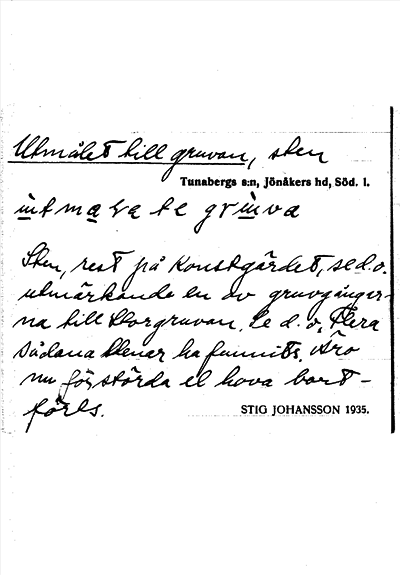 Utmålet till gruvan, sten
Tunabergs s:n, Jönåkers hd, Söd. l.
te grùva
Sten, rest på Konstgärdet, se d. o.
utmärkande en av gruvgångar-
na till Storgruvan, Se d. o, Flera
sådana stenar ha funnits. Äro
nu förstörda el bort-
förts.
STIG JOHANSSON 1935.